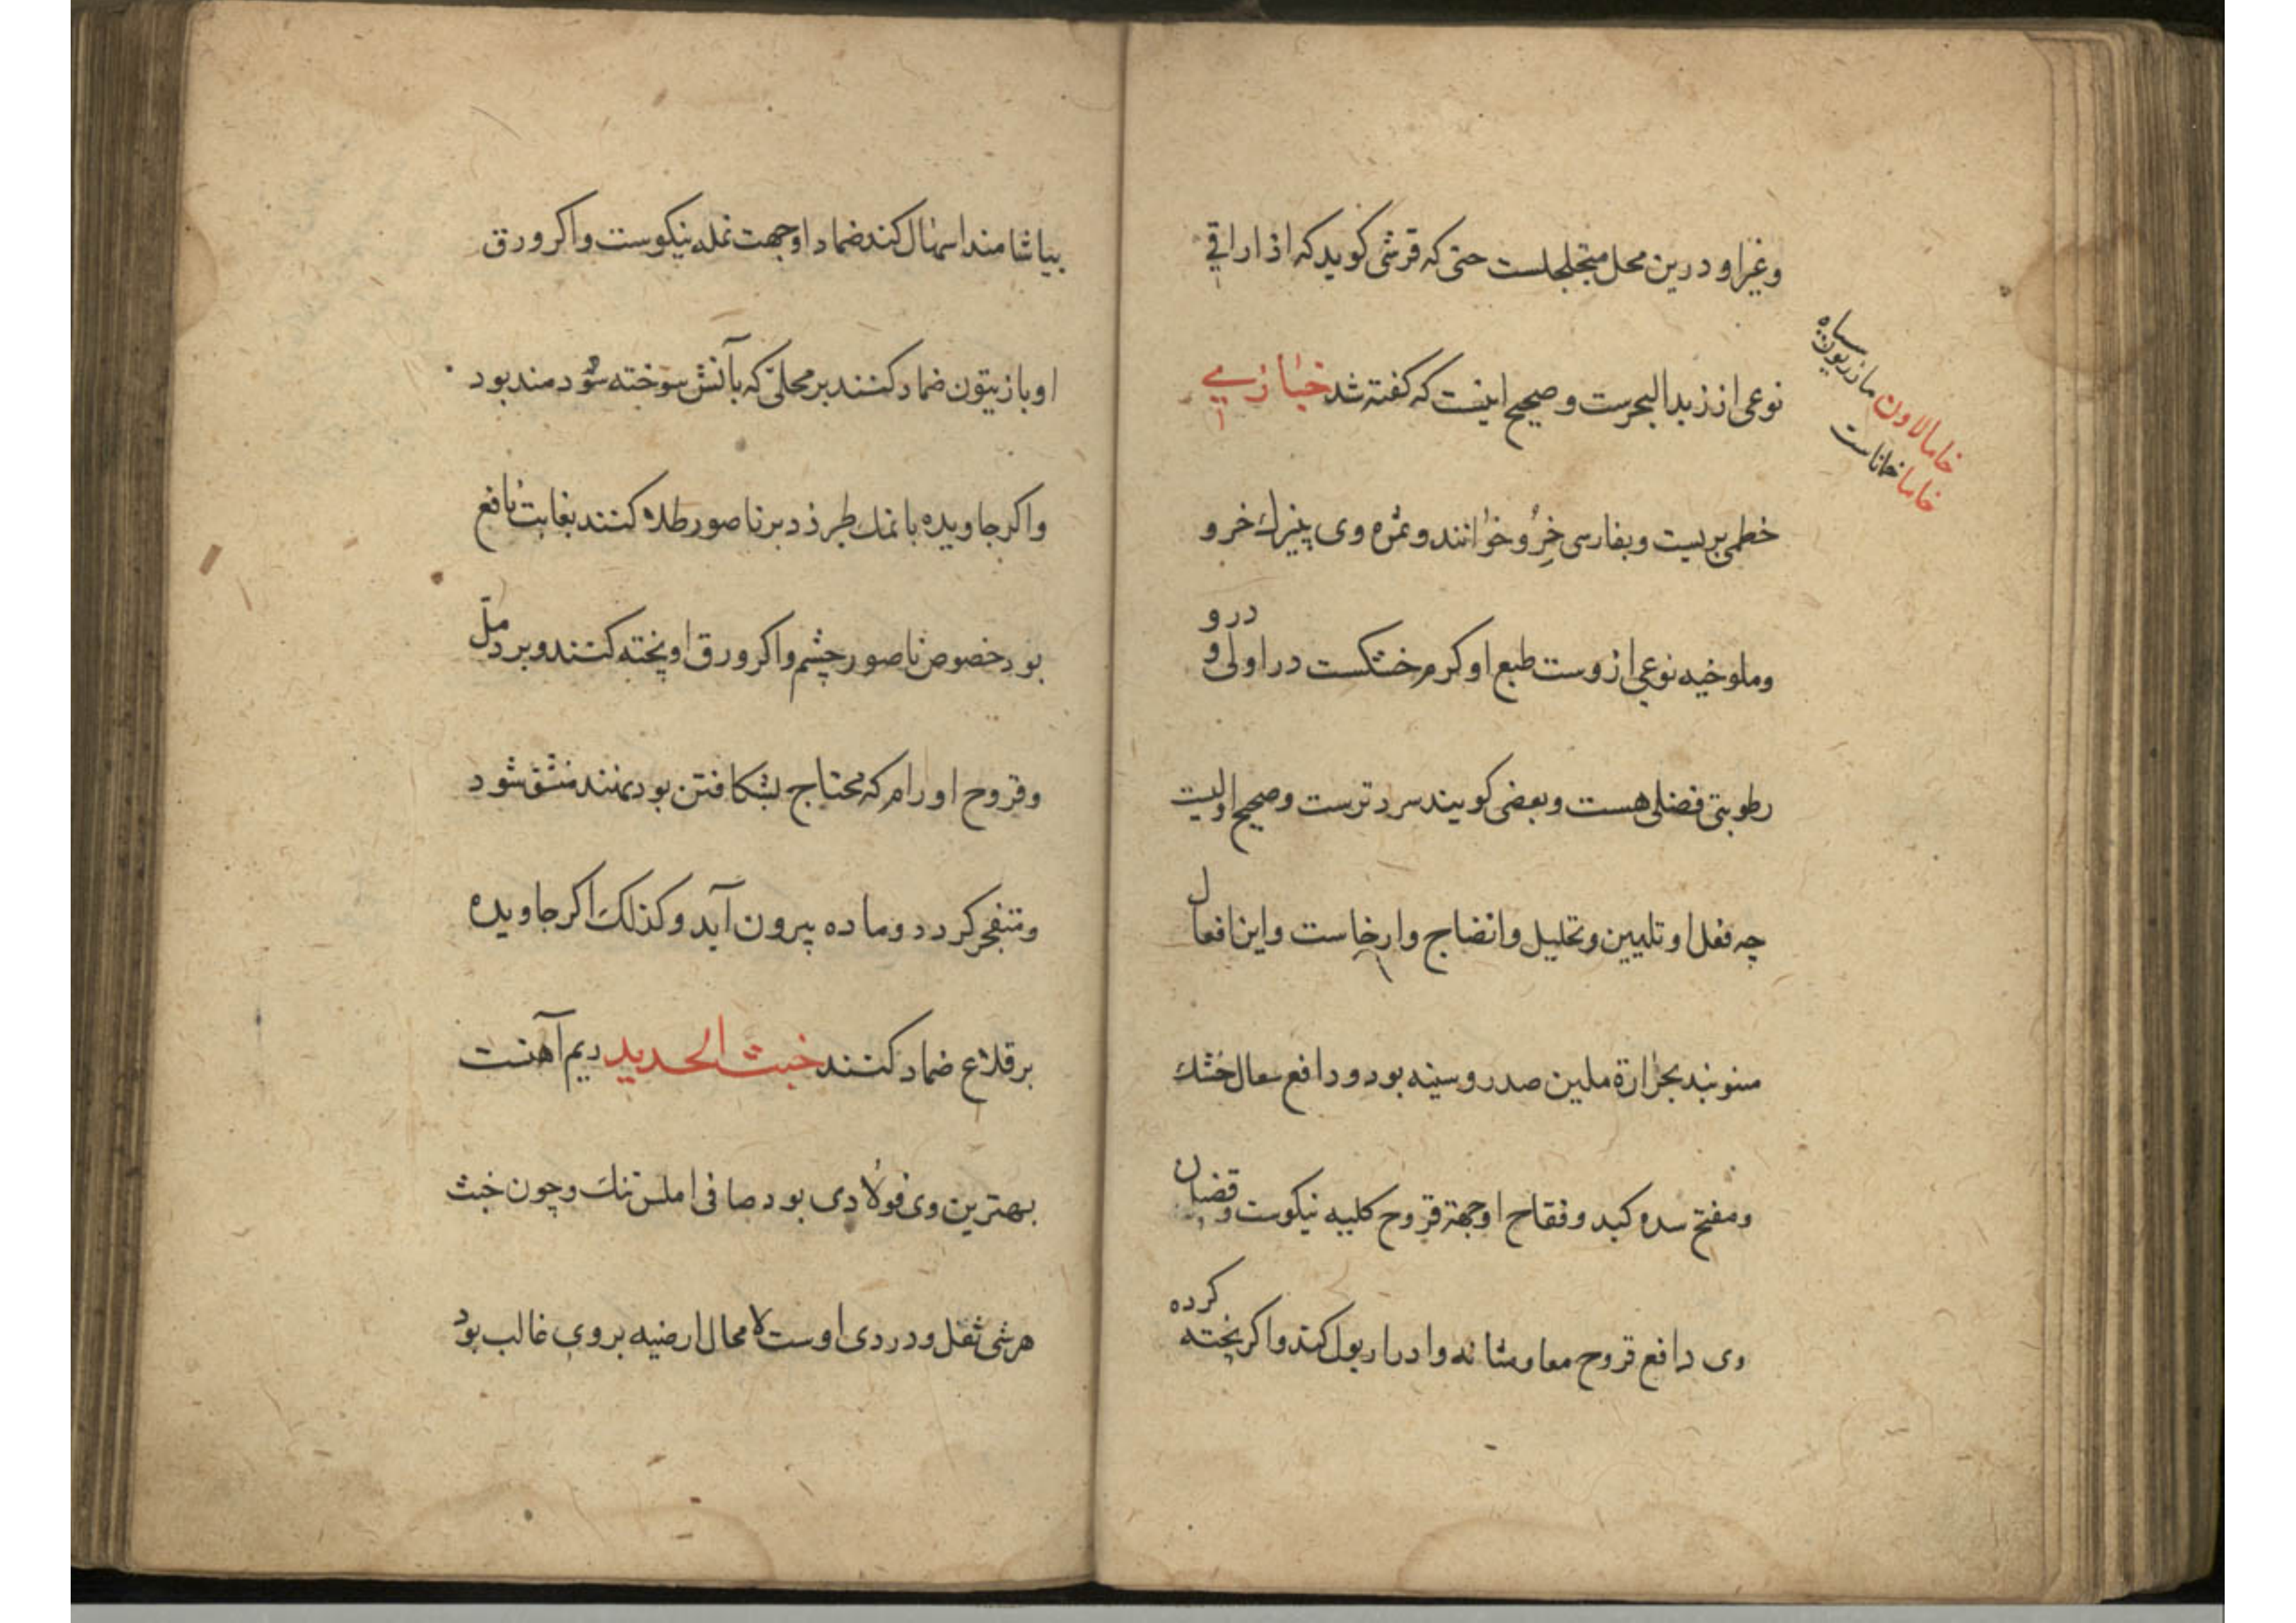 وغیر او درین محل متخلخلست حتی که قرشی کوید که اذاراقی
نوعی از زبد البحرست و صحیح اینست که کفته شد خبازی
خطمی بریست و بفارسی خرو خوانند و ثمره وی پنیرك خرو
و ملوخیه نوعی ازوست طبع او کرم خشکست در اولی و درو
رطوبتی فضلی هست و بعضی کویند سرد ترست و صحیح اولیست
چه فعل او تلیین و تحلیل و انضاج و ارخاست و این افعال
منوبند بحرارة ملین صدر و سینه بود و دافع سعال خشك
و مفتح سده کبد و فقاح او جهة قروح کلیه نیکوست و قضبان
وی دافع قروح معا و مثانه و ادرار بول کند و اکر پخته کرده
خامالاون مازریون سیاه
خاما خاناست
بیاشامند اسهال کند ضماد او جهت نمله نیکوست و اکر ورق
او با زیتون ضماد کنند بر محلی که بآتش سوخته شود سودمند بود
و اکر جاویده با نمك طبرزد بر ناصور طلا کنند بغایت نافع
بود خصوص ناصور چشم و اکر ورق او پخته کنند و بر دمل
و قروح اورام که محتاج بشکافتن بود نهند منشق شود
و متفجر کردد و ماده بیرون آید و کذلك اکر جاویده
بر قلاع ضماد کنند خبث الحدید ریم آهنست
بهترین وی فولادی بود صافی املس تنك و چون خبث
هر شی ثقل و دردی اوست لا محال ارضیه بر وی غالب بود